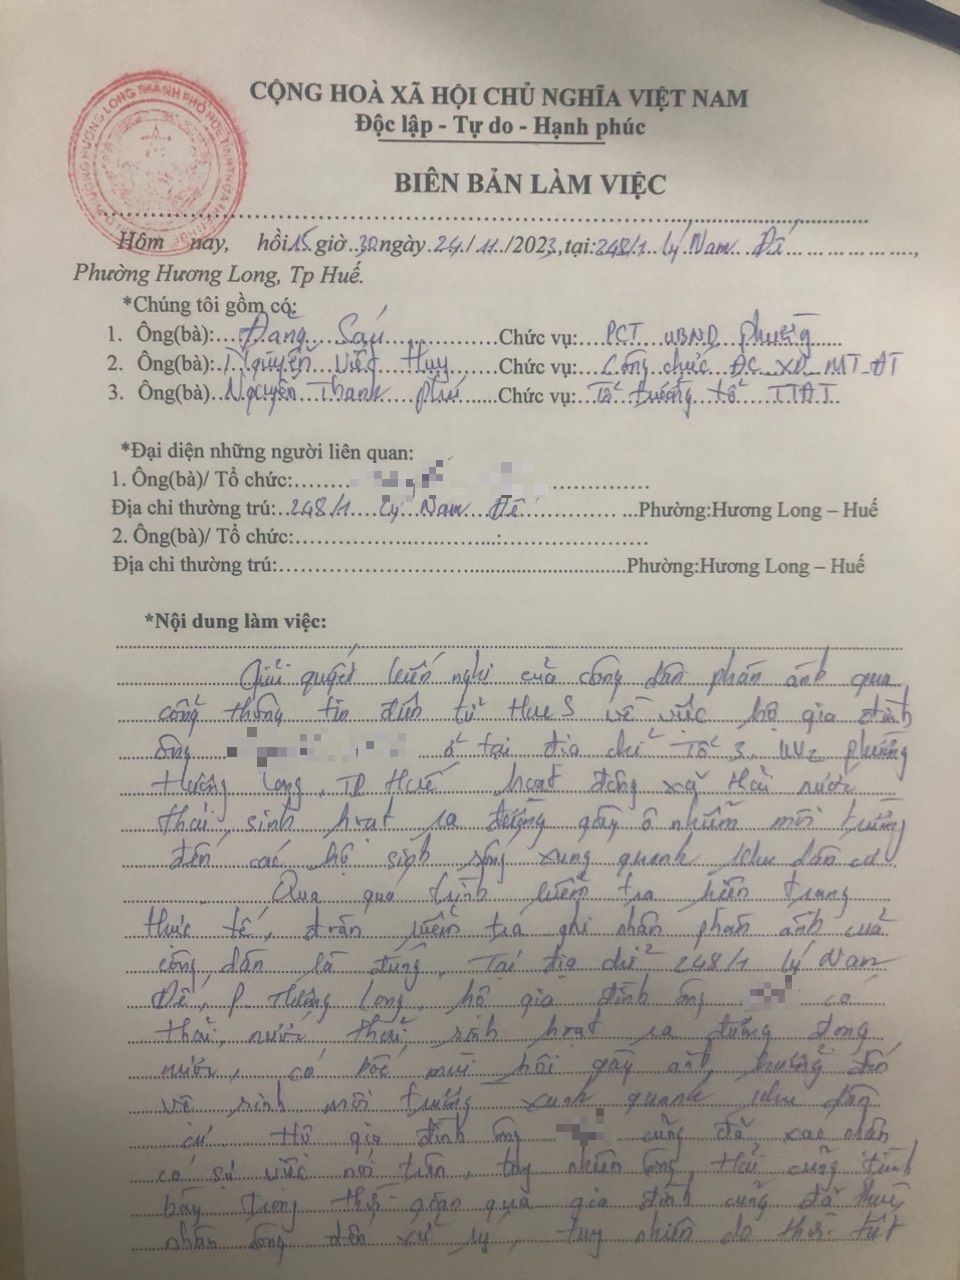 CỘNG HOÀ XÃ HỘI CHỦ NGHĨA VIỆT NAM
Độc lập - Tự do - Hạnh phúc
BIÊN BẢN LÀM VIỆC
Hôm nay, hồi 15 giờ 30 ngày 24/11/2023, tại: 248/1 Lý Nam Đế,
Phường Hương Long, Tp Huế.
*Chúng tôi gồm có:
1. Ông(bà): Đặng Sáu Chức vụ: PCT UBND phường
2. Ông(bà): Nguyễn Viết Huy Chức vụ: Công chức ĐC XD MT ĐT
3. Ông(bà) Nguyễn Thanh Phú Chức vụ: Tổ trưởng tổ TTĐT
*Đại diện những người liên quan:
1. Ông(bà)/ Tổ chức:
Địa chỉ thường trú: 248/1 Lý Nam Đế Phường:Hương Long – Huế
2. Ông(bà)/ Tổ chức:
Địa chỉ thường trú: Phường:Hương Long – Huế
*Nội dung làm việc:
Giải quyết kiến nghị của công dân phản ánh qua
cổng thông tin điện tử Hue S về việc hộ gia đình
ông ở tại địa chỉ Tổ 3 KV2 phường
Hương Long, TP Huế hoạt động xả thải nước
thải sinh hoạt ra đường gây ô nhiễm môi trường
đến các hộ sinh sống xung quanh khu dân cư
Qua quá trình kiểm tra hiện trạng
thực tế, đoàn kiểm tra ghi nhận phản ánh của
công dân là đúng. Tại địa chỉ 248/1 Lý Nam
Đế, P. Hương Long, hộ gia đình ông có
thải nước thải sinh hoạt ra đường đọng
nước, có bốc mùi hôi gây ảnh hưởng đến
vệ sinh môi trường xung quanh khu dân
cư. Hộ gia đình ông cũng đã xác nhận
có sự việc nói trên, tuy nhiên ông Hải cũng trình
bày trong thời gian qua gia đình cũng đã thuê
nhân công đến xử lý, tuy nhiên do thời tiết